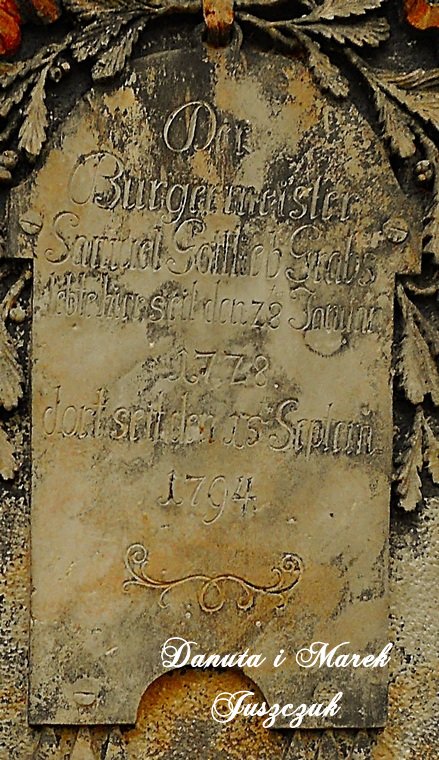 Der
Burgermeister
Samuel Gottlieb Grabs
lebte hier seit den 28 Januar
1728.
dort seit den 15 Septem.
1794.
Danuta i Marek
Juszczuk